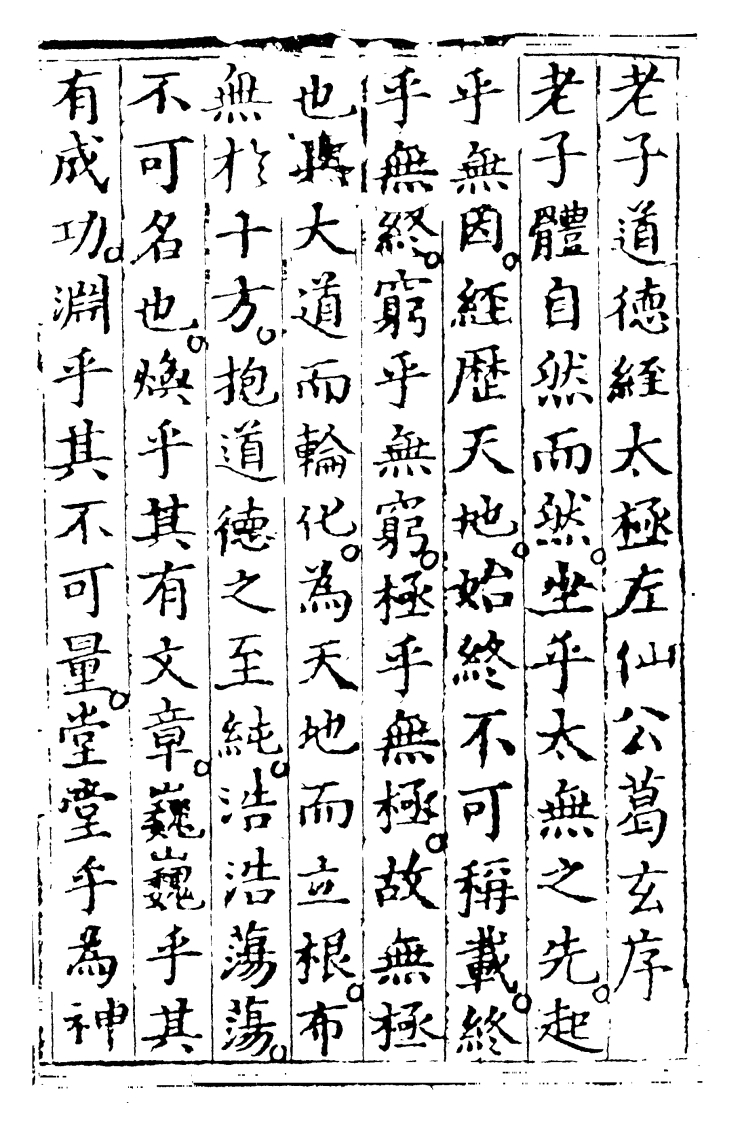 老子道德經太極左仙公葛玄序
老子體自然而然。坐乎太無之先。起
乎無因。經歷天地。始終不可稱載。終
乎無終。窮乎無窮。極乎無極。故無極
也與大道而輪化。為天地而立根。布
無於十方。抱道德之至純。浩浩蕩蕩。
不可名也。煥乎其有文章。巍巍乎其
有成功。淵乎其不可量。堂堂乎為神